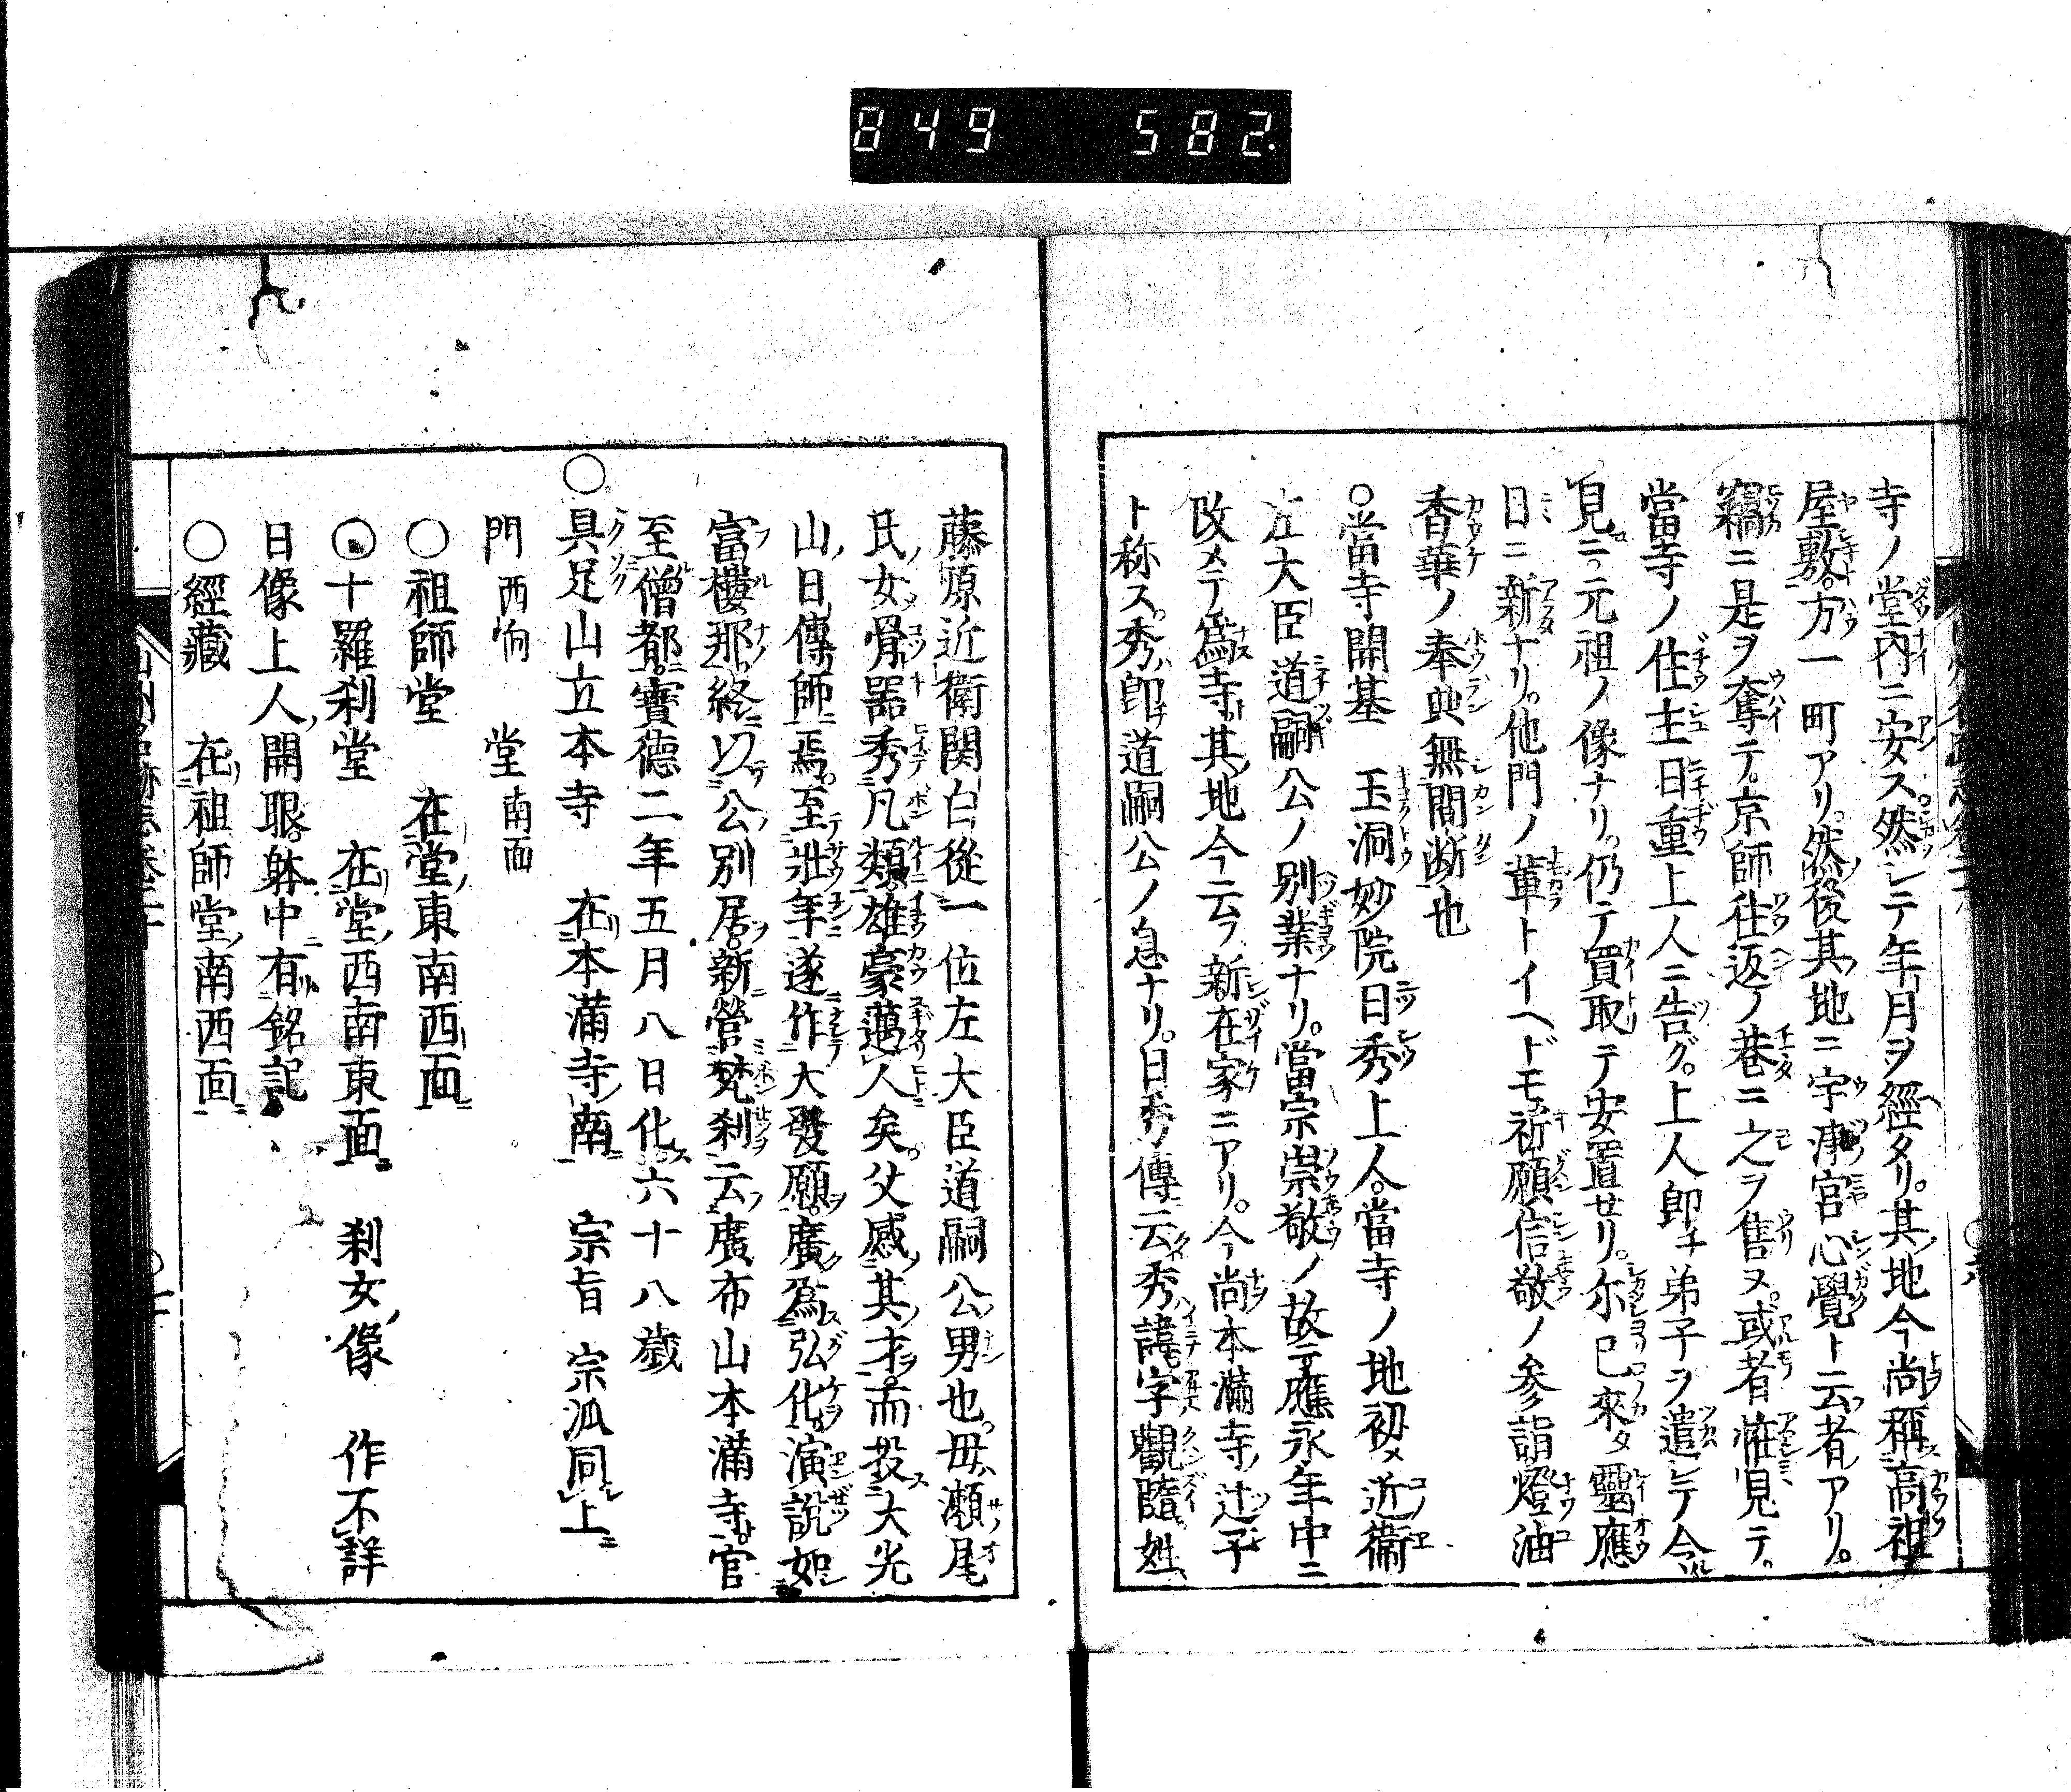 849 582.
寺ノ堂內ニ安ス然シテ年月ヲ經タリ。其地今尚稱高祖
屋敷。方一町アリ。然後其地ニ宇津宮心覺ト云者アリ。
竊ニ是ヲ奪テ。京師往返ノ巷ニ之ヲ售ヌ。或者恠見テ。
當寺ノ住主日重上人ニ告グ。上人卽チ弟子ヲ遣シテ令
見ニ。元祖ノ像ナリ。仍テ買取テ安置せリ。尓已來タ靈應
日ニ新ナリ。他門ノ輩トイヘドモ祈願信敬ノ参詣燈油
香華ノ奉奠無間断也
○當寺開基 玉洞妙院日秀上人。當寺ノ地初メ近衞
左大臣道嗣公ノ別業ナリ。當宗崇敬ノ故ニ應永年中ニ
改メテ爲寺。其地今云フ新在家ニアリ。今尚本滿寺ノ辻子
ト称ス。秀ハ卽チ道嗣公ノ息ナリ。日秀傳云秀諱字觀隨姓
藤原近衛関白從一位左大臣道嗣公男也。母瀬尾
氏女骨器秀凡類雄豪邁人矣。父感其才。而投大光
山日傳師焉。至壯年遂作大發願。廣爲弘化。演說如
富樓那。終以公別居。新營梵刹云廣布山本滿寺。官
至僧都。寶德二年五月八日化六十八歲
○具足山立本寺 在本滿寺南 宗旨 宗派同上
門西向 堂南面
○祖師堂 在堂東南西面
○十羅刹堂 在堂西南東面 刹女像 作不詳
日像上人開眼。躰中有銘記
○經藏 在祖師堂南西面